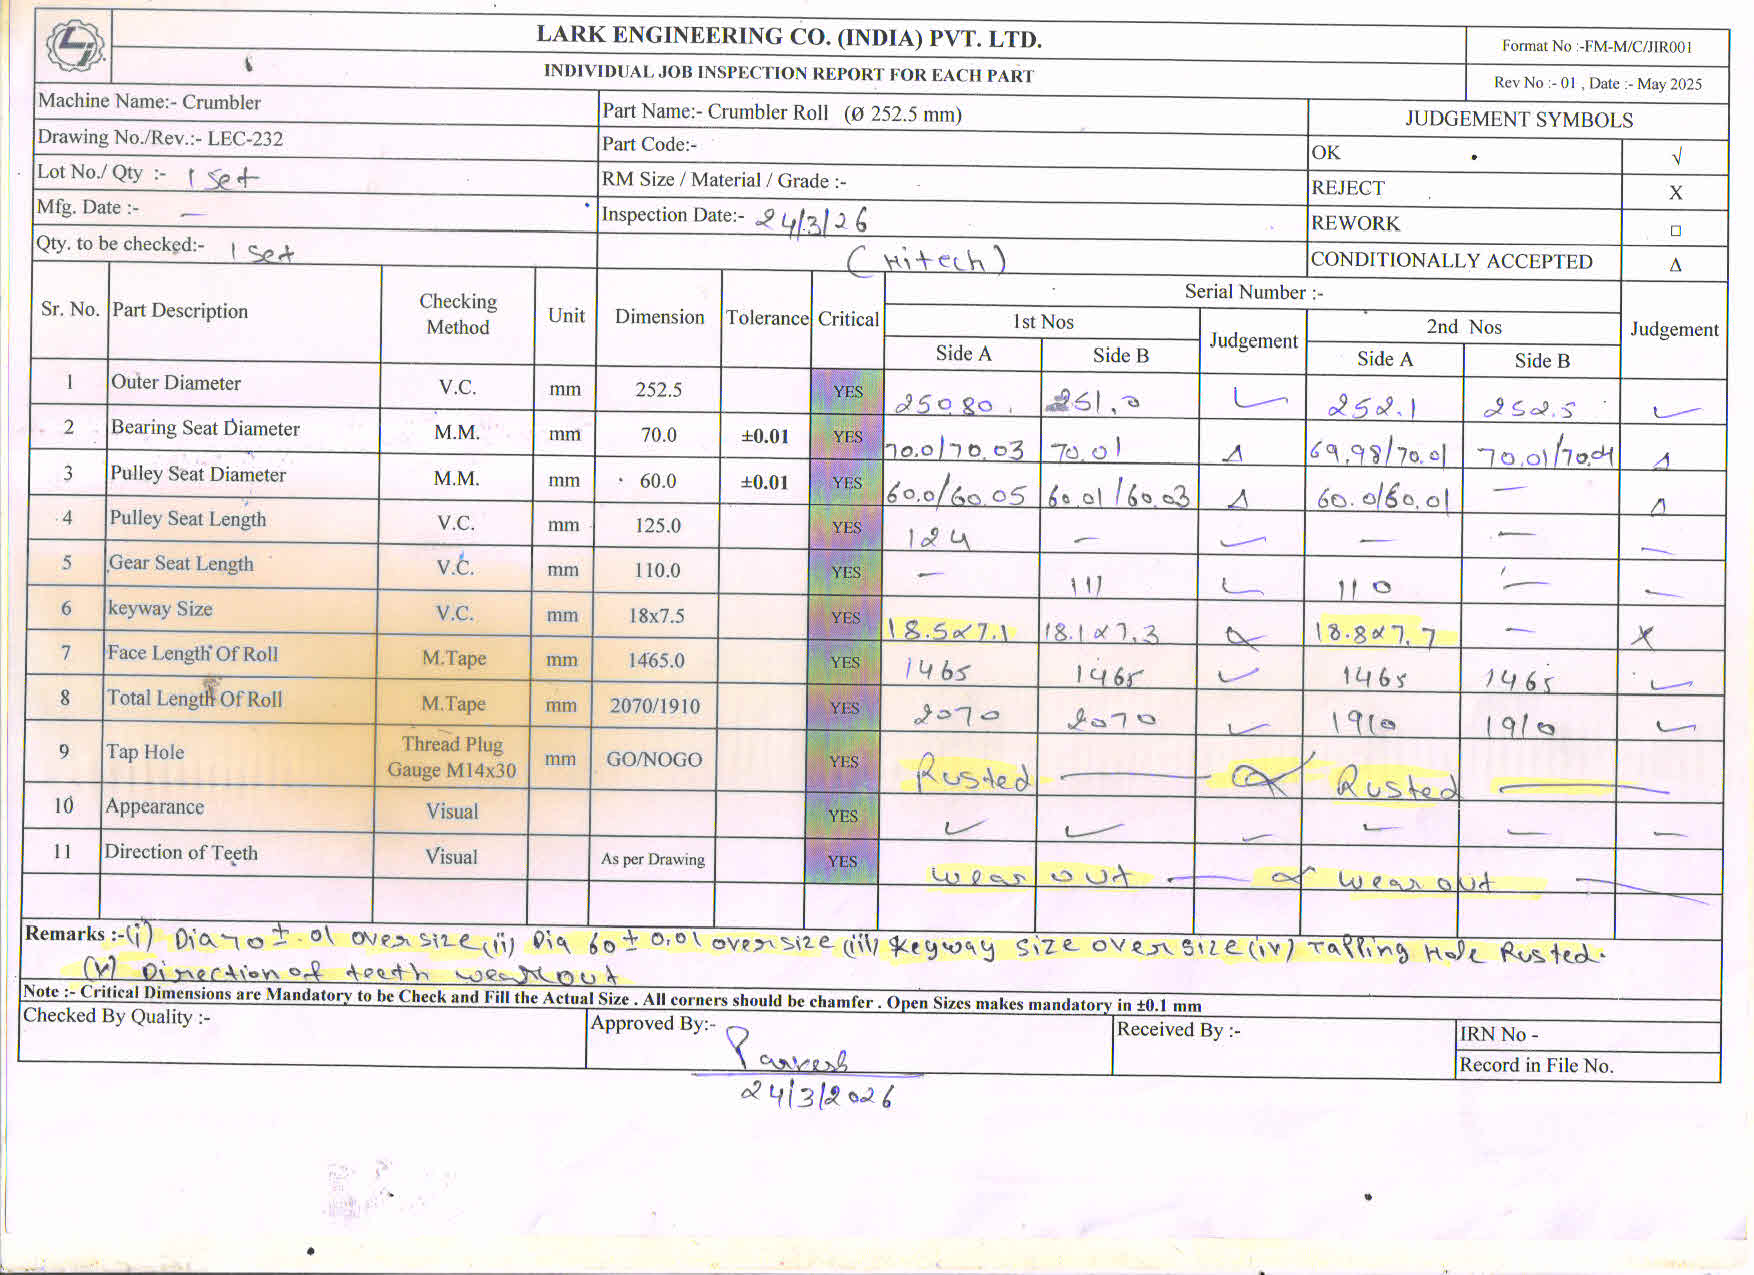 LARK ENGINEERING CO. (INDIA) PVT. LTD.
INDIVIDUAL JOB INSPECTION REPORT FOR EACH PART
Format No :-FM-M/C/JIR001
Rev No :- 01 , Date :- May 2025
Machine Name:- Crumbler
Part Name:- Crumbler Roll (Ø 252.5 mm)
JUDGEMENT SYMBOLS
Drawing No./Rev.:- LEC-232
Part Code:-
OK √
Lot No./ Qty :- 1 Set
RM Size / Material / Grade :-
REJECT X
Mfg. Date :- —
Inspection Date:- 24/3/26
REWORK □
Qty. to be checked:- 1 Set
(Hitech)
CONDITIONALLY ACCEPTED Δ
Sr. No. Part Description Checking Method Unit Dimension Tolerance Critical Serial Number :- Judgement
1st Nos Judgement 2nd Nos
Side A Side B Side A Side B
1 Outer Diameter V.C. mm 252.5 YES 250.80 251.0 ✓ 252.1 252.5 ✓
2 Bearing Seat Diameter M.M. mm 70.0 ±0.01 YES 70.0/70.03 70.01 Δ 69.98/70.01 70.01/70.01 Δ
3 Pulley Seat Diameter M.M. mm 60.0 ±0.01 YES 60.0/60.05 60.01/60.03 Δ 60.0/60.01 — Δ
4 Pulley Seat Length V.C. mm 125.0 YES 124 — ✓ — — —
5 Gear Seat Length V.C. mm 110.0 YES — 111 ✓ 110 — —
6 keyway Size V.C. mm 18x7.5 YES 18.5x7.1 18.1x7.3 X 18.8x7.7 — X
7 Face Length Of Roll M.Tape mm 1465.0 YES 1465 1465 ✓ 1465 1465 ✓
8 Total Length Of Roll M.Tape mm 2070/1910 YES 2070 2070 ✓ 1910 1910 ✓
9 Tap Hole Thread Plug Gauge M14x30 mm GO/NOGO YES Rusted — X Rusted —
10 Appearance Visual YES ✓ ✓ ✓ ✓ — —
11 Direction of Teeth Visual As per Drawing YES wear out — X wear out —
Remarks :-(i) Dia 70 ± .01 oversize (ii) Dia 60 ± 0.01 oversize (iii) Keyway size oversize (iv) Tapping Hole Rusted.
(v) Direction of teeth wear out
Note :- Critical Dimensions are Mandatory to be Check and Fill the Actual Size . All corners should be chamfer . Open Sizes makes mandatory in ±0.1 mm
Checked By Quality :-
Approved By:- Parvesh
24/3/2026
Received By :-
IRN No -
Record in File No.